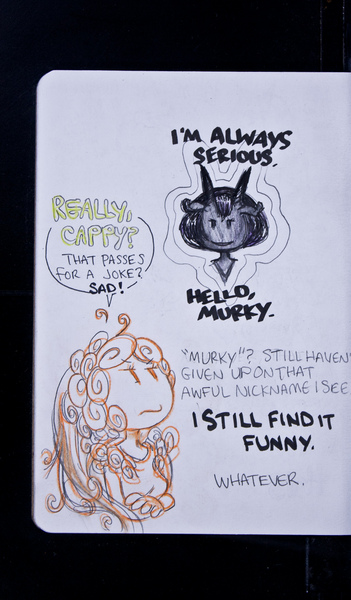 I'M ALWAYS
SERIOUS.
REALLY,
CAPPY?
THAT PASSES
FOR A JOKE?
SAD!
HELLO,
MURKY.
"MURKY"? STILL HAVEN'
GIVEN UP ON THAT
AWFUL NICKNAME I SEE
I STILL FIND IT
FUNNY.
WHATEVER.